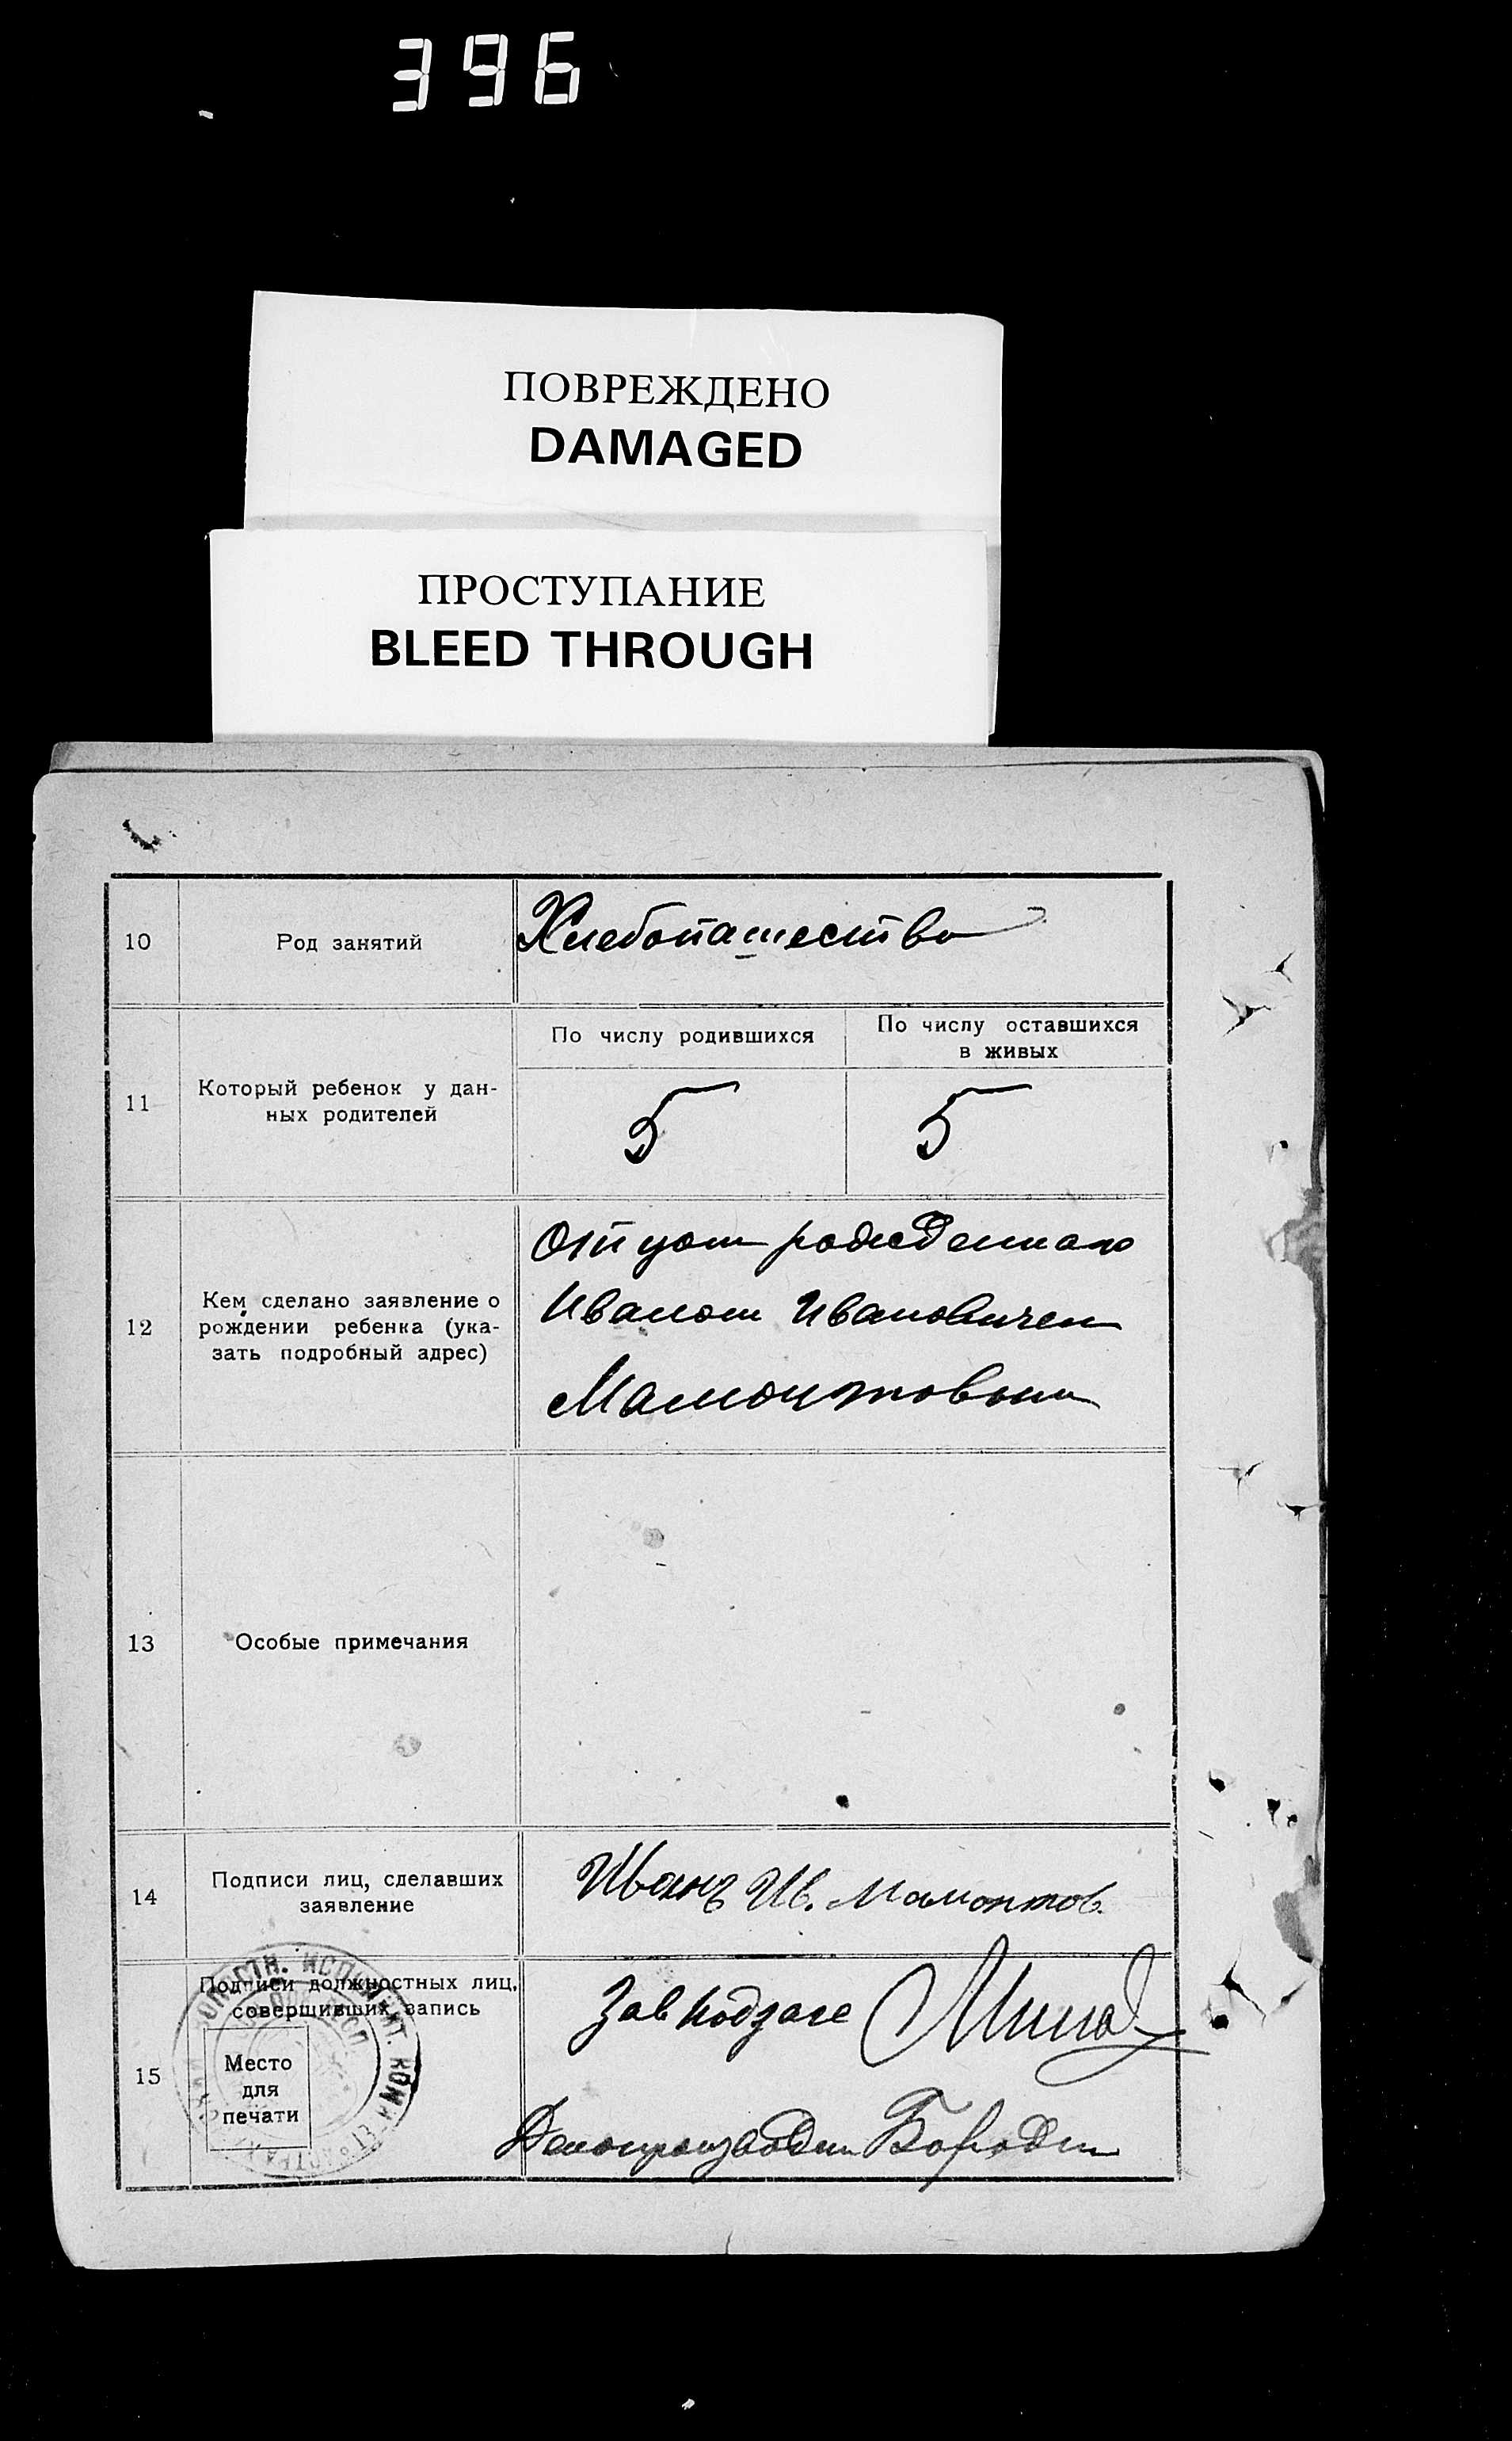 396
ПОВРЕЖДЕНО
DAMAGED
ПРОСТУПАНИЕ
BLEED THROUGH
10
Род занятий
Хлебопашество
11
Который ребенок у дан-
ных родителей
По числу родившихся
По числу оставшихся
в живых
5
5
12
Кем сделано заявление о
рождении ребенка (ука-
зать подробный адрес)
Отцом рожденного
Иваном Ивановичем
Мамонтовым
13
Особые примечания
14
Подписи лиц, сделавших
заявление
Иванъ Ив. Мамонтов.
15
Подписи должностных лиц,
совершивших запись
Место
для
печати
Зав подзагс
Делопроизводи Бородин